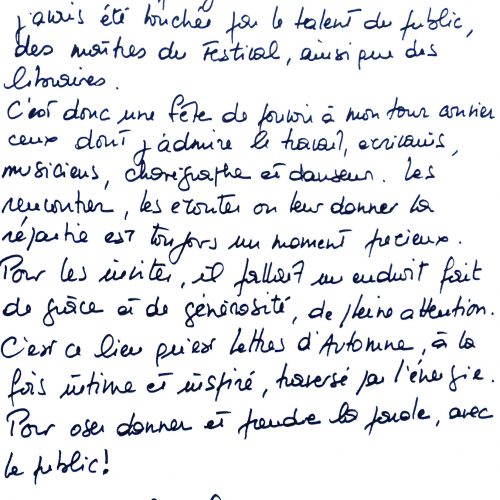 j'avais été touchée par le talent du public,
des maîtres du Festival, ainsi que des
libraires.
C'est donc une fête de pouvoir à mon tour convier
ceux dont j'admire le travail, écrivains,
musiciens, chorégraphe et danseur. Les
rencontrer, les écouter ou leur donner la
répartie est toujours un moment précieux.
Pour les inviter, il fallait un endroit fait
de grâce et de générosité, de pleine attention.
C'est ce lieu qu'est Lettres d'Automne, à la
fois intime et inspiré, traversé par l'énergie.
Pour oser donner et prendre la parole, avec
le public!